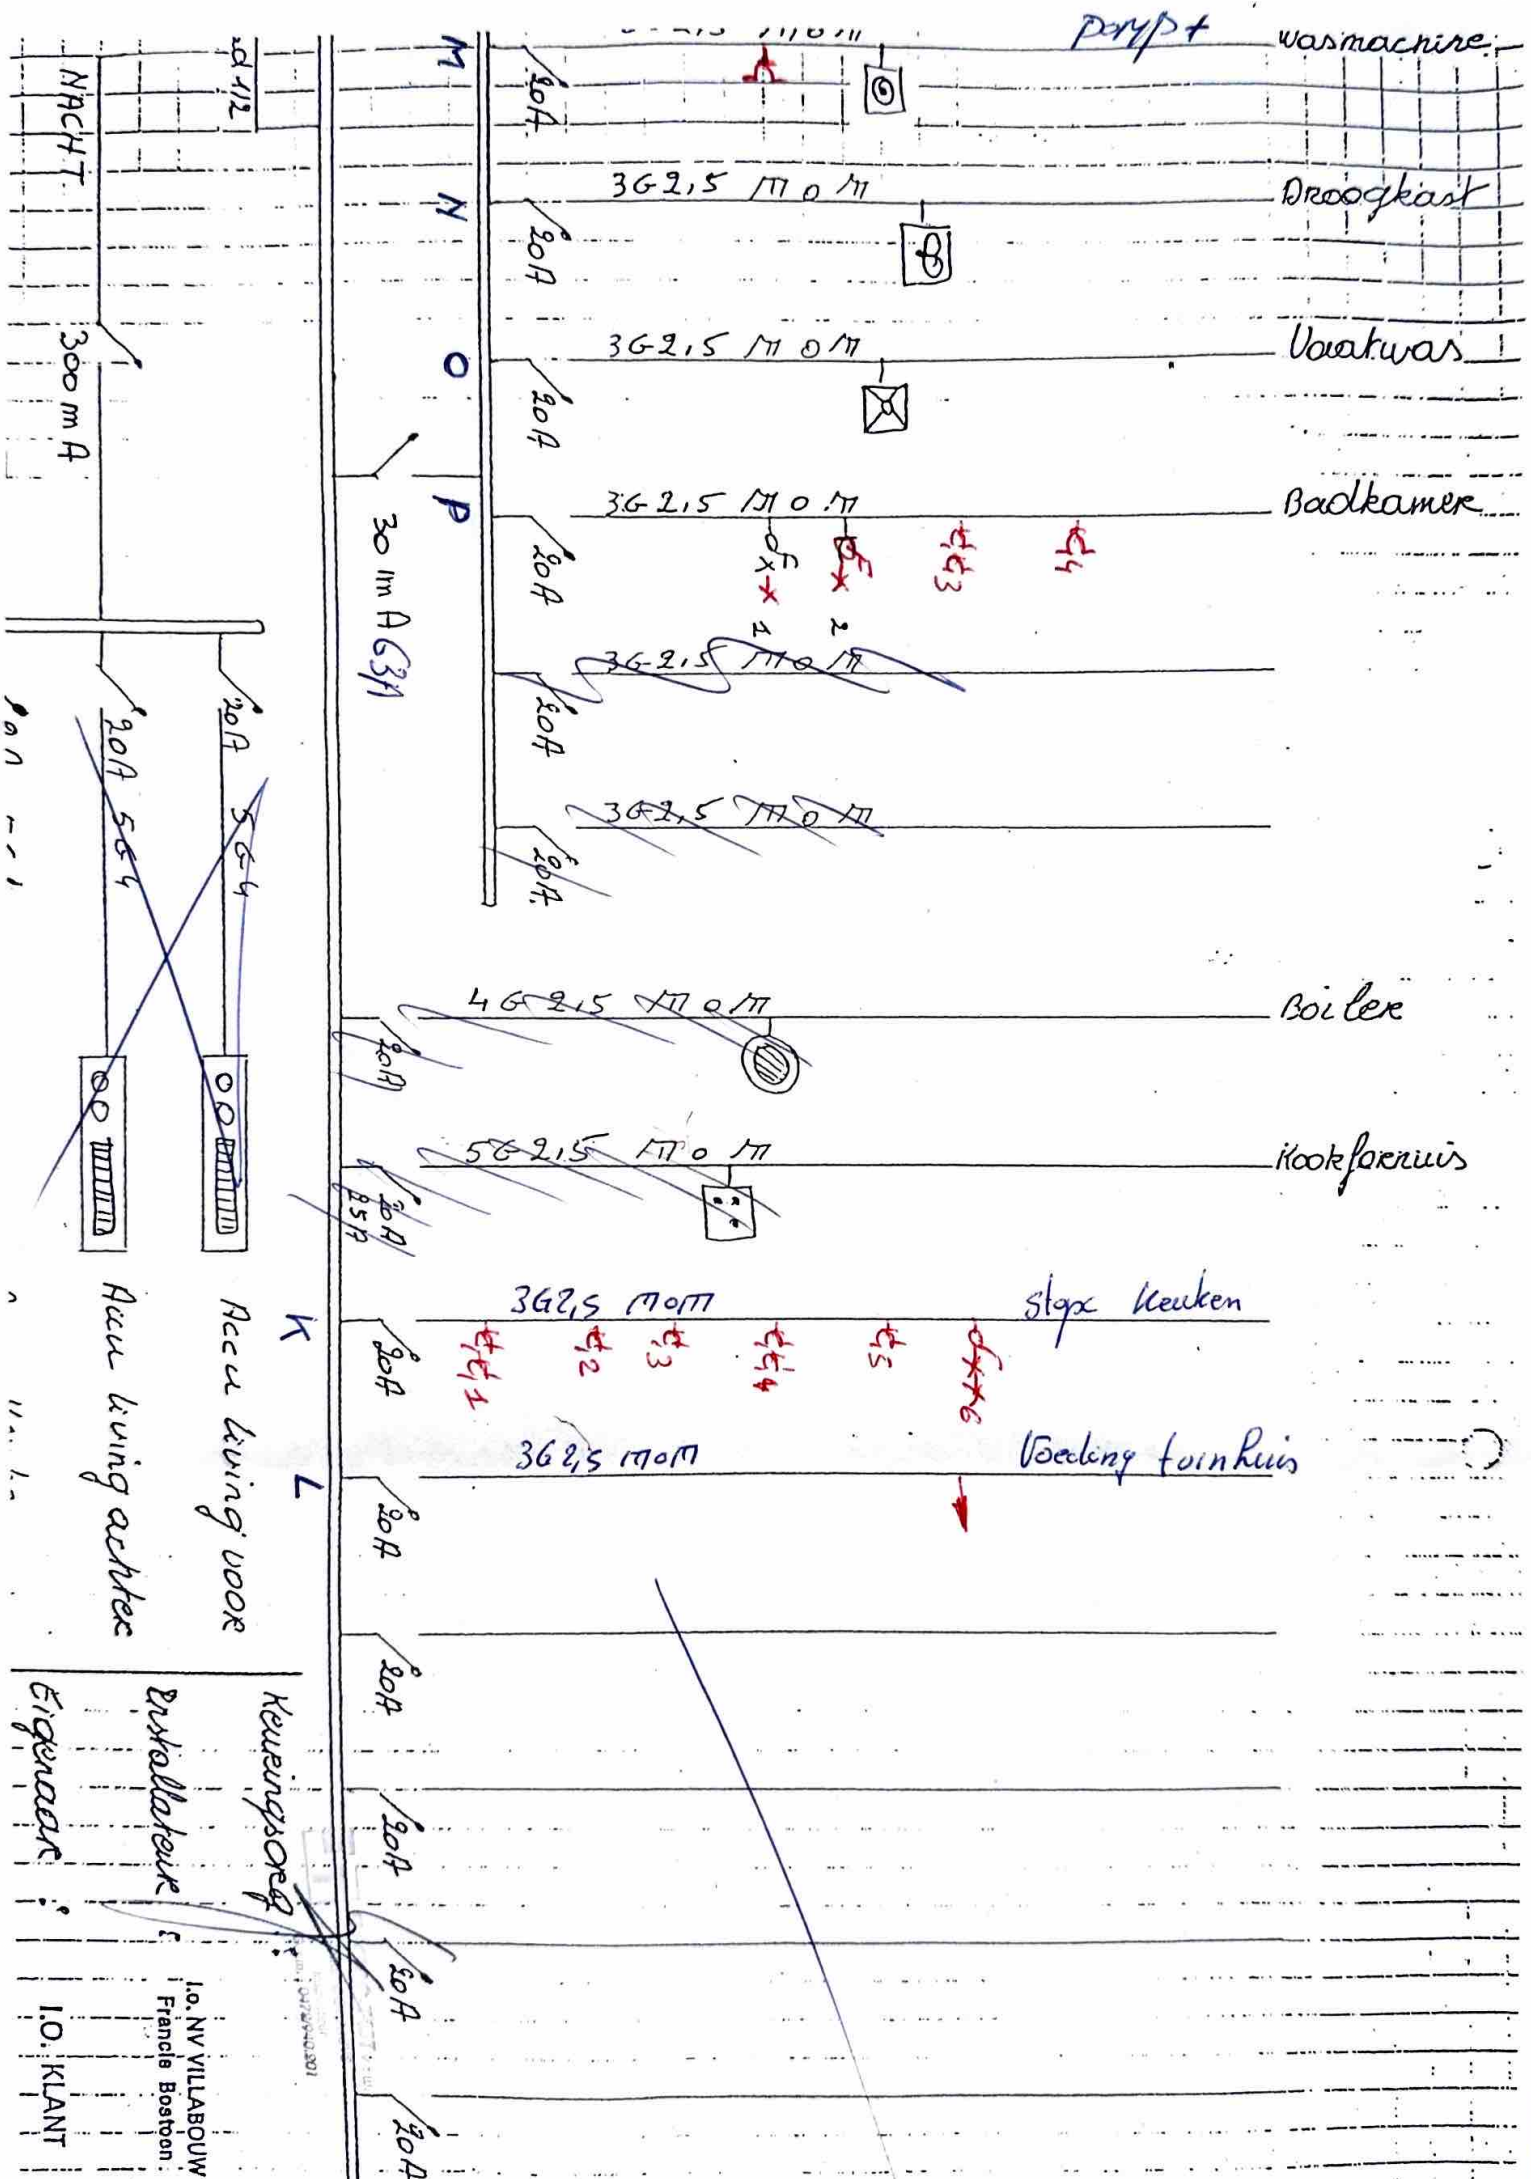 wasmachine
M
20A
N
3G2,5 M o M
Droogkast
20A
O
3G2,5 M o M
Vaatwas
20A
P
3G2,5 M o M
Badkamer
20A
1
2
3
4
30 mA 63A
3G2,5 M o M
20A
3G2,5 M o M
20A
4G2,5 M o M
Boiler
20A
5G2,5 M o M
Kookfornuis
20A
25A
K
3G2,5 M o M
Stopc Keuken
20A
1
2
3
4
5
6
L
3G2,5 M o M
Voeding tuinhuis
20A
20A
20A
20A
20A
NACHT
300 mA
20A 5G4
Accu living voor
20A 5G4
Accu living achter
Keuringsorg :
Installateur :
I.O. NV VILLABOUW
Francis Bostoen
Eigenaar :
I.O. KLANT